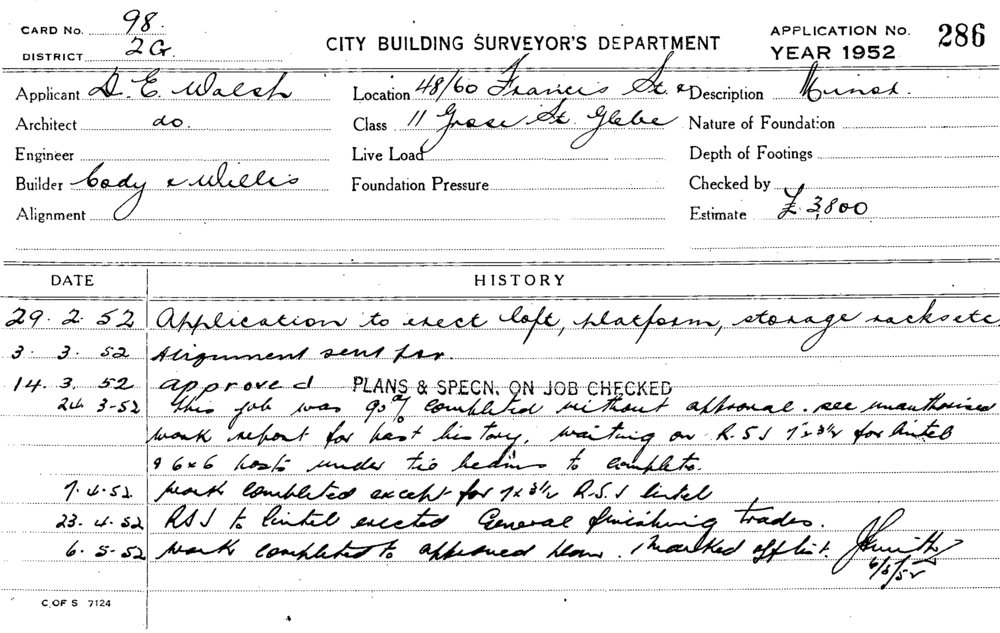 CARD No. 98.
DISTRICT 2G.
CITY BUILDING SURVEYOR'S DEPARTMENT
APPLICATION No. 286
YEAR 1952
Applicant D. E. Walsh
Location 48/60 Francis St. &
Description Minor.
Architect do.
Class 11 Grose St. Glebe
Nature of Foundation
Engineer
Live Load
Depth of Footings
Builder Cody & Willis
Foundation Pressure
Checked by
Alignment
Estimate £3,800
DATE HISTORY
29. 2. 52 Application to erect loft, platform, storage racks etc
3. 3. 52 Alignment sent for.
14. 3. 52 approved PLANS & SPECN. ON JOB CHECKED
24 3-52 This job was 90% completed without approval. see unauthorised
work report for past history. waiting on R.S.J 7x3½ for lintel
& 6x6 posts under tie beams to complete.
7.4.52 work completed except for 7x3½ R.S.J lintel
23.4.52 RSJ to lintel erected General finishing trades.
6.5.52 work completed to approved plan. Marked off list. JSmith
6/5/52
C. OF S 7124